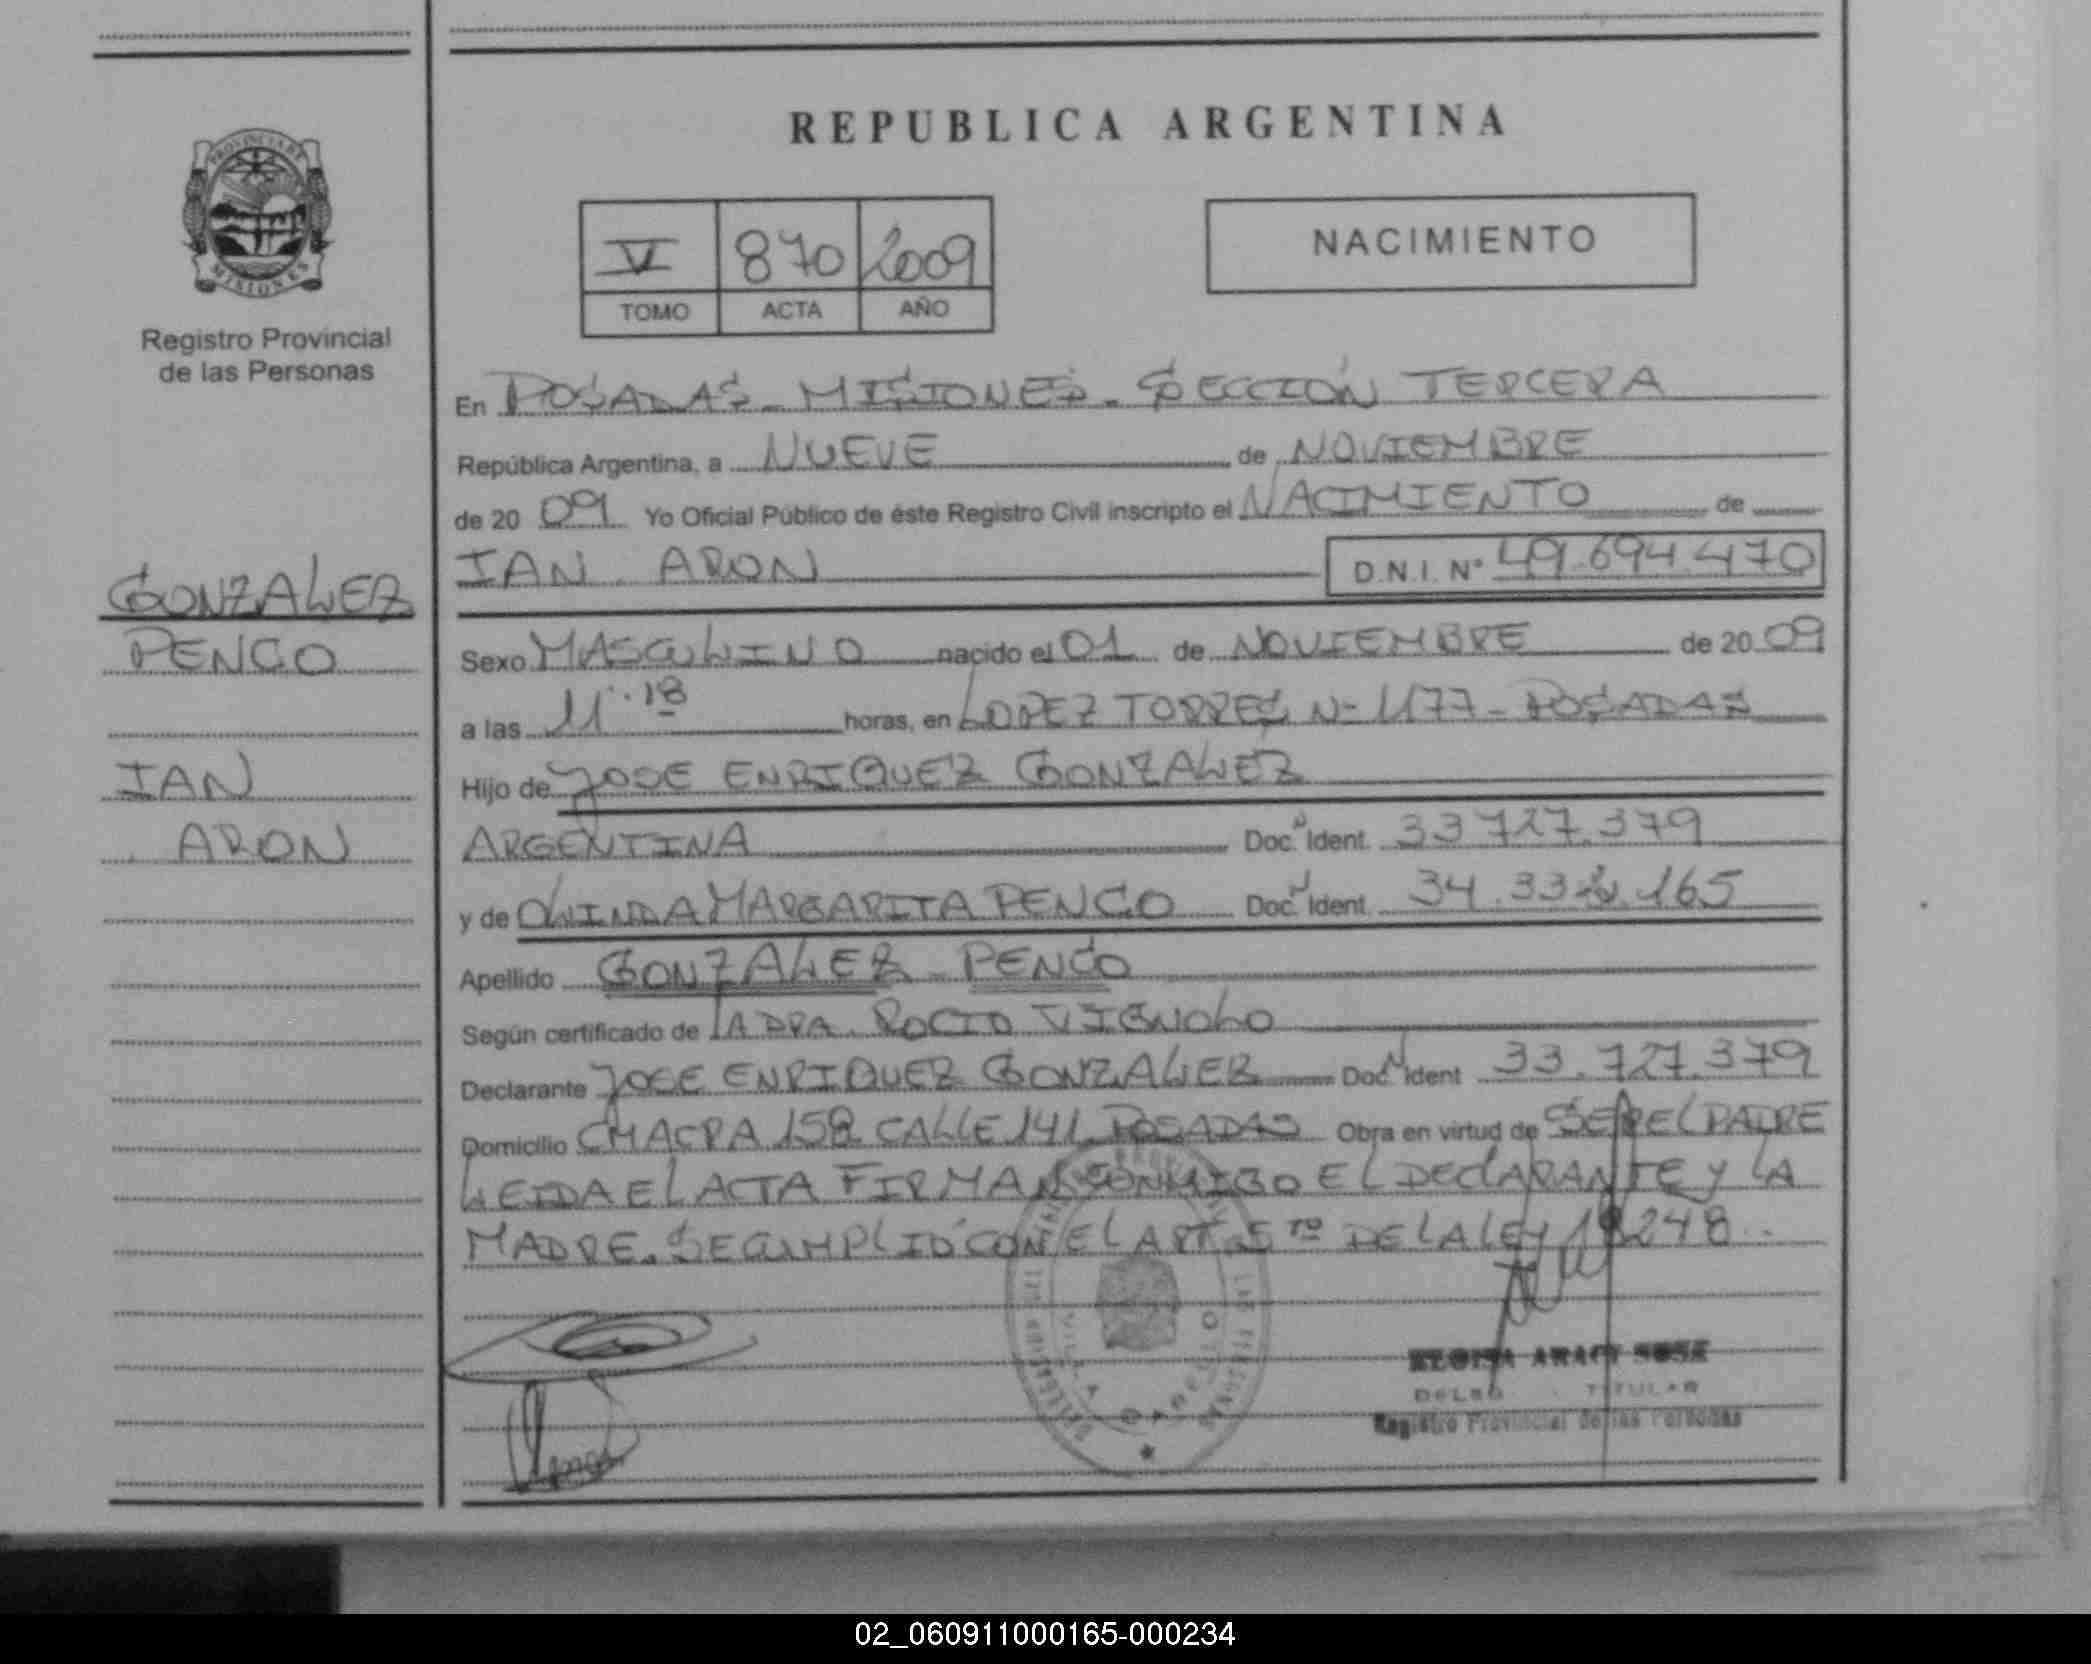 REPUBLICA ARGENTINA
PROVINCIA DE
MISIONES
Registro Provincial
de las Personas
V 870 2009
TOMO ACTA AÑO
NACIMIENTO
En POSADAS - MISIONES - SECCIÓN TERCERA
República Argentina, a NUEVE de NOVIEMBRE
de 20 09 Yo Oficial Público de éste Registro Civil inscripto el NACIMIENTO de
IAN ARON D.N.I. Nº 49.694.470
GONZALEZ
PENCO
IAN
ARON
Sexo MASCULINO nacido el 01 de NOVIEMBRE de 20 09
a las 11:18 horas, en LOPEZ TORRES Nº 1177 - POSADAS
Hijo de JOSE ENRIQUEZ GONZALEZ
ARGENTINA Doc. Ident. 33.727.379
y de OLINDA MARGARITA PENCO Doc. Ident. 34.33 .165
Apellido GONZALEZ PENCO
Según certificado de LA DRA. ROCIO VIGNOLO
Declarante JOSE ENRIQUEZ GONZALEZ Doc. Ident 33.727.379
Domicilio CHACRA 158 CALLE 141 POSADAS Obra en virtud de SER EL PADRE
LEIDA EL ACTA FIRMAN CONMIGO EL DECLARANTE Y LA
MADRE. SE CUMPLIÓ CON EL ART. 5to DE LA LEY 18248.
TITULAR
Registro Provincial de las Personas
02_060911000165-000234